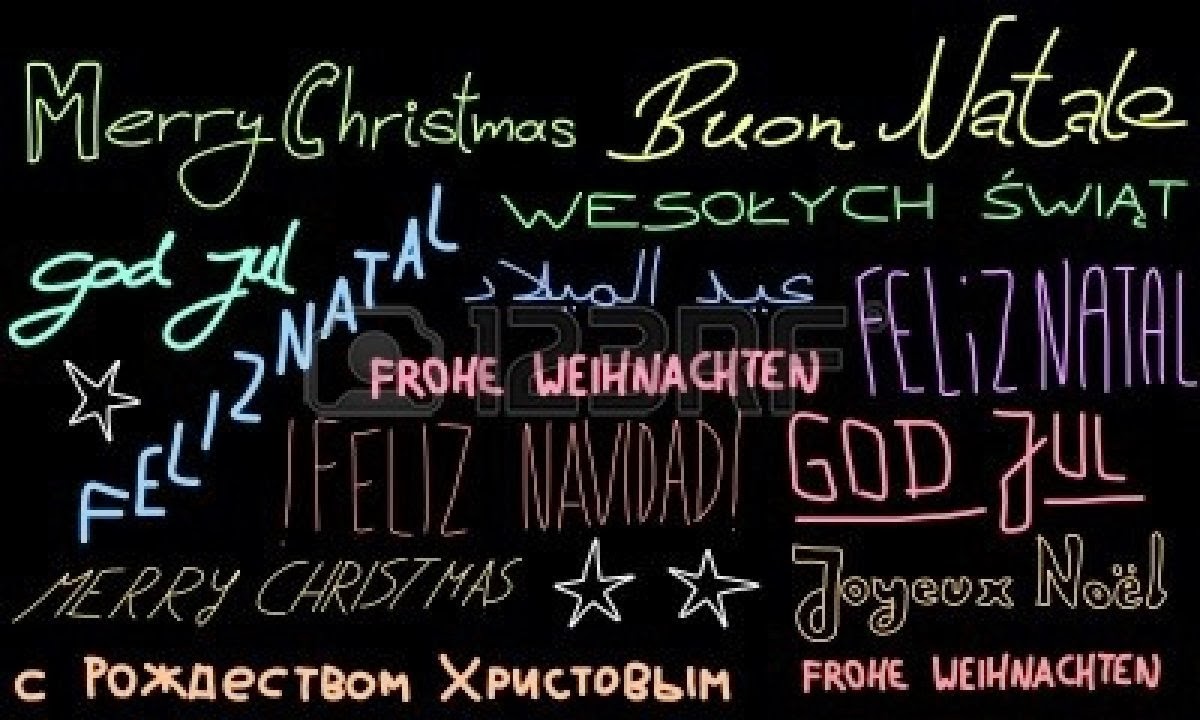 Merry Christmas Buon Natale
WESOŁYCH ŚWIĄT
god jul
FELIZ NATAL
عيد الميلاد
FELiZ NATAL
123RF®
FROHE WEIHNACHTEN
!FELIZ NAVIDAD!
GOD JUL
MERRY CHRISTMAS
Joyeux Noël
с Рождеством Христовым
FROHE WEIHNACHTEN